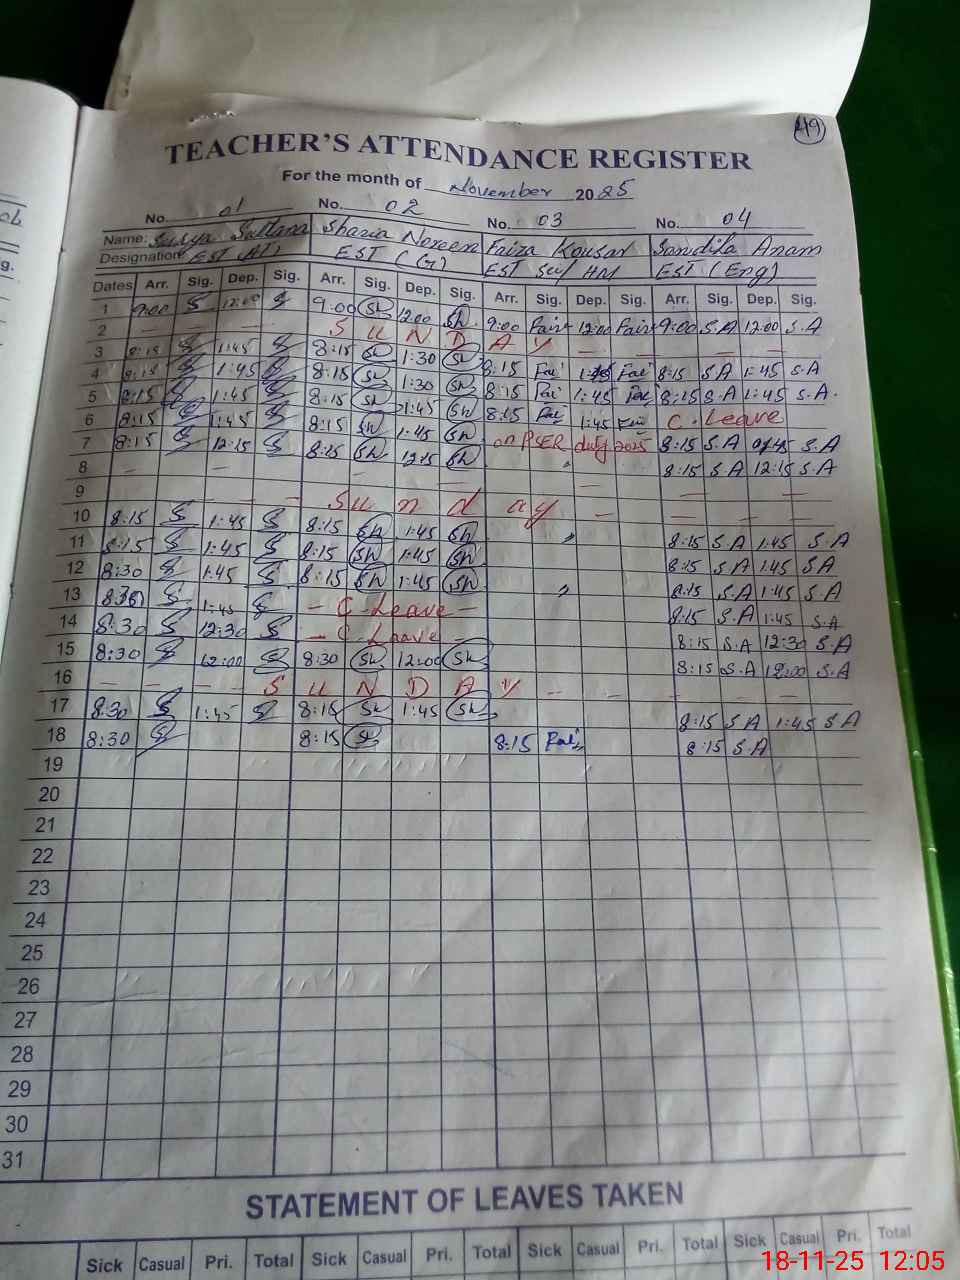 49
TEACHER'S ATTENDANCE REGISTER
For the month of November 2025
No. 01 No. 02 No. 03 No. 04
Name: Sultana Sharia Noreen Faiza Kousar Sandila Anam
Designation EST (AT) EST (G) EST Sci/HM EST (Eng)
Dates Arr. Sig. Dep. Sig. Arr. Sig. Dep. Sig. Arr. Sig. Dep. Sig. Arr. Sig. Dep. Sig.
1 9:00 S 12:00 S 9:00 Sh 12:00 Sh 9:00 Fai 12:00 Fai 9:00 S.A 12:00 S.A
2 — — — S U N D A Y — — — —
3 8:15 S 1:45 S 8:15 Sh 1:30 Sh 8:15 Fai 1:45 Fai 8:15 S.A 1:45 S.A
4 8:15 S 1:45 S 8:15 Sh 1:30 Sh 8:15 Fai 1:45 Fai 8:15 S.A 1:45 S.A
5 8:15 S 1:45 S 8:15 Sh 1:45 Sh 8:15 Fai 1:45 Fai C. Leave
6 8:15 S 1:45 S 8:15 Sh 1:45 Sh on PSER duty 2025 8:15 S.A S.A
7 8:15 S 12:15 S 8:15 Sh 12:15 Sh 8:15 S.A 12:15 S.A
8 — — — — — — —
9 — — — Sunday — — —
10 8:15 S 1:45 S 8:15 Sh 1:45 Sh 8:15 S.A 1:45 S.A
11 8:15 S 1:45 S 8:15 Sh 1:45 Sh 8:15 S.A 1:45 S.A
12 8:30 S 1:45 S 8:15 Sh 1:45 Sh 8:15 S.A 1:45 S.A
13 8:30 S 1:45 S — C. Leave — 8:15 S.A 1:45 S.A
14 8:30 S 12:30 S — C. Leave — 8:15 S.A 12:30 S.A
15 8:30 S 12:00 S 8:30 Sh 12:00 Sh 8:15 S.A 12:00 S.A
16 — — — S U N D A Y — — — —
17 8:30 S 1:45 S 8:15 Sh 1:45 Sh 8:15 S.A 1:45 S.A
18 8:30 S 8:15 Sh 8:15 Fai 8:15 S.A
19
20
21
22
23
24
25
26
27
28
29
30
31
STATEMENT OF LEAVES TAKEN
Sick Casual Pri. Total Sick Casual Pri. Total Sick Casual Pri. Total Sick Casual Pri. Total
18-11-25 12:05